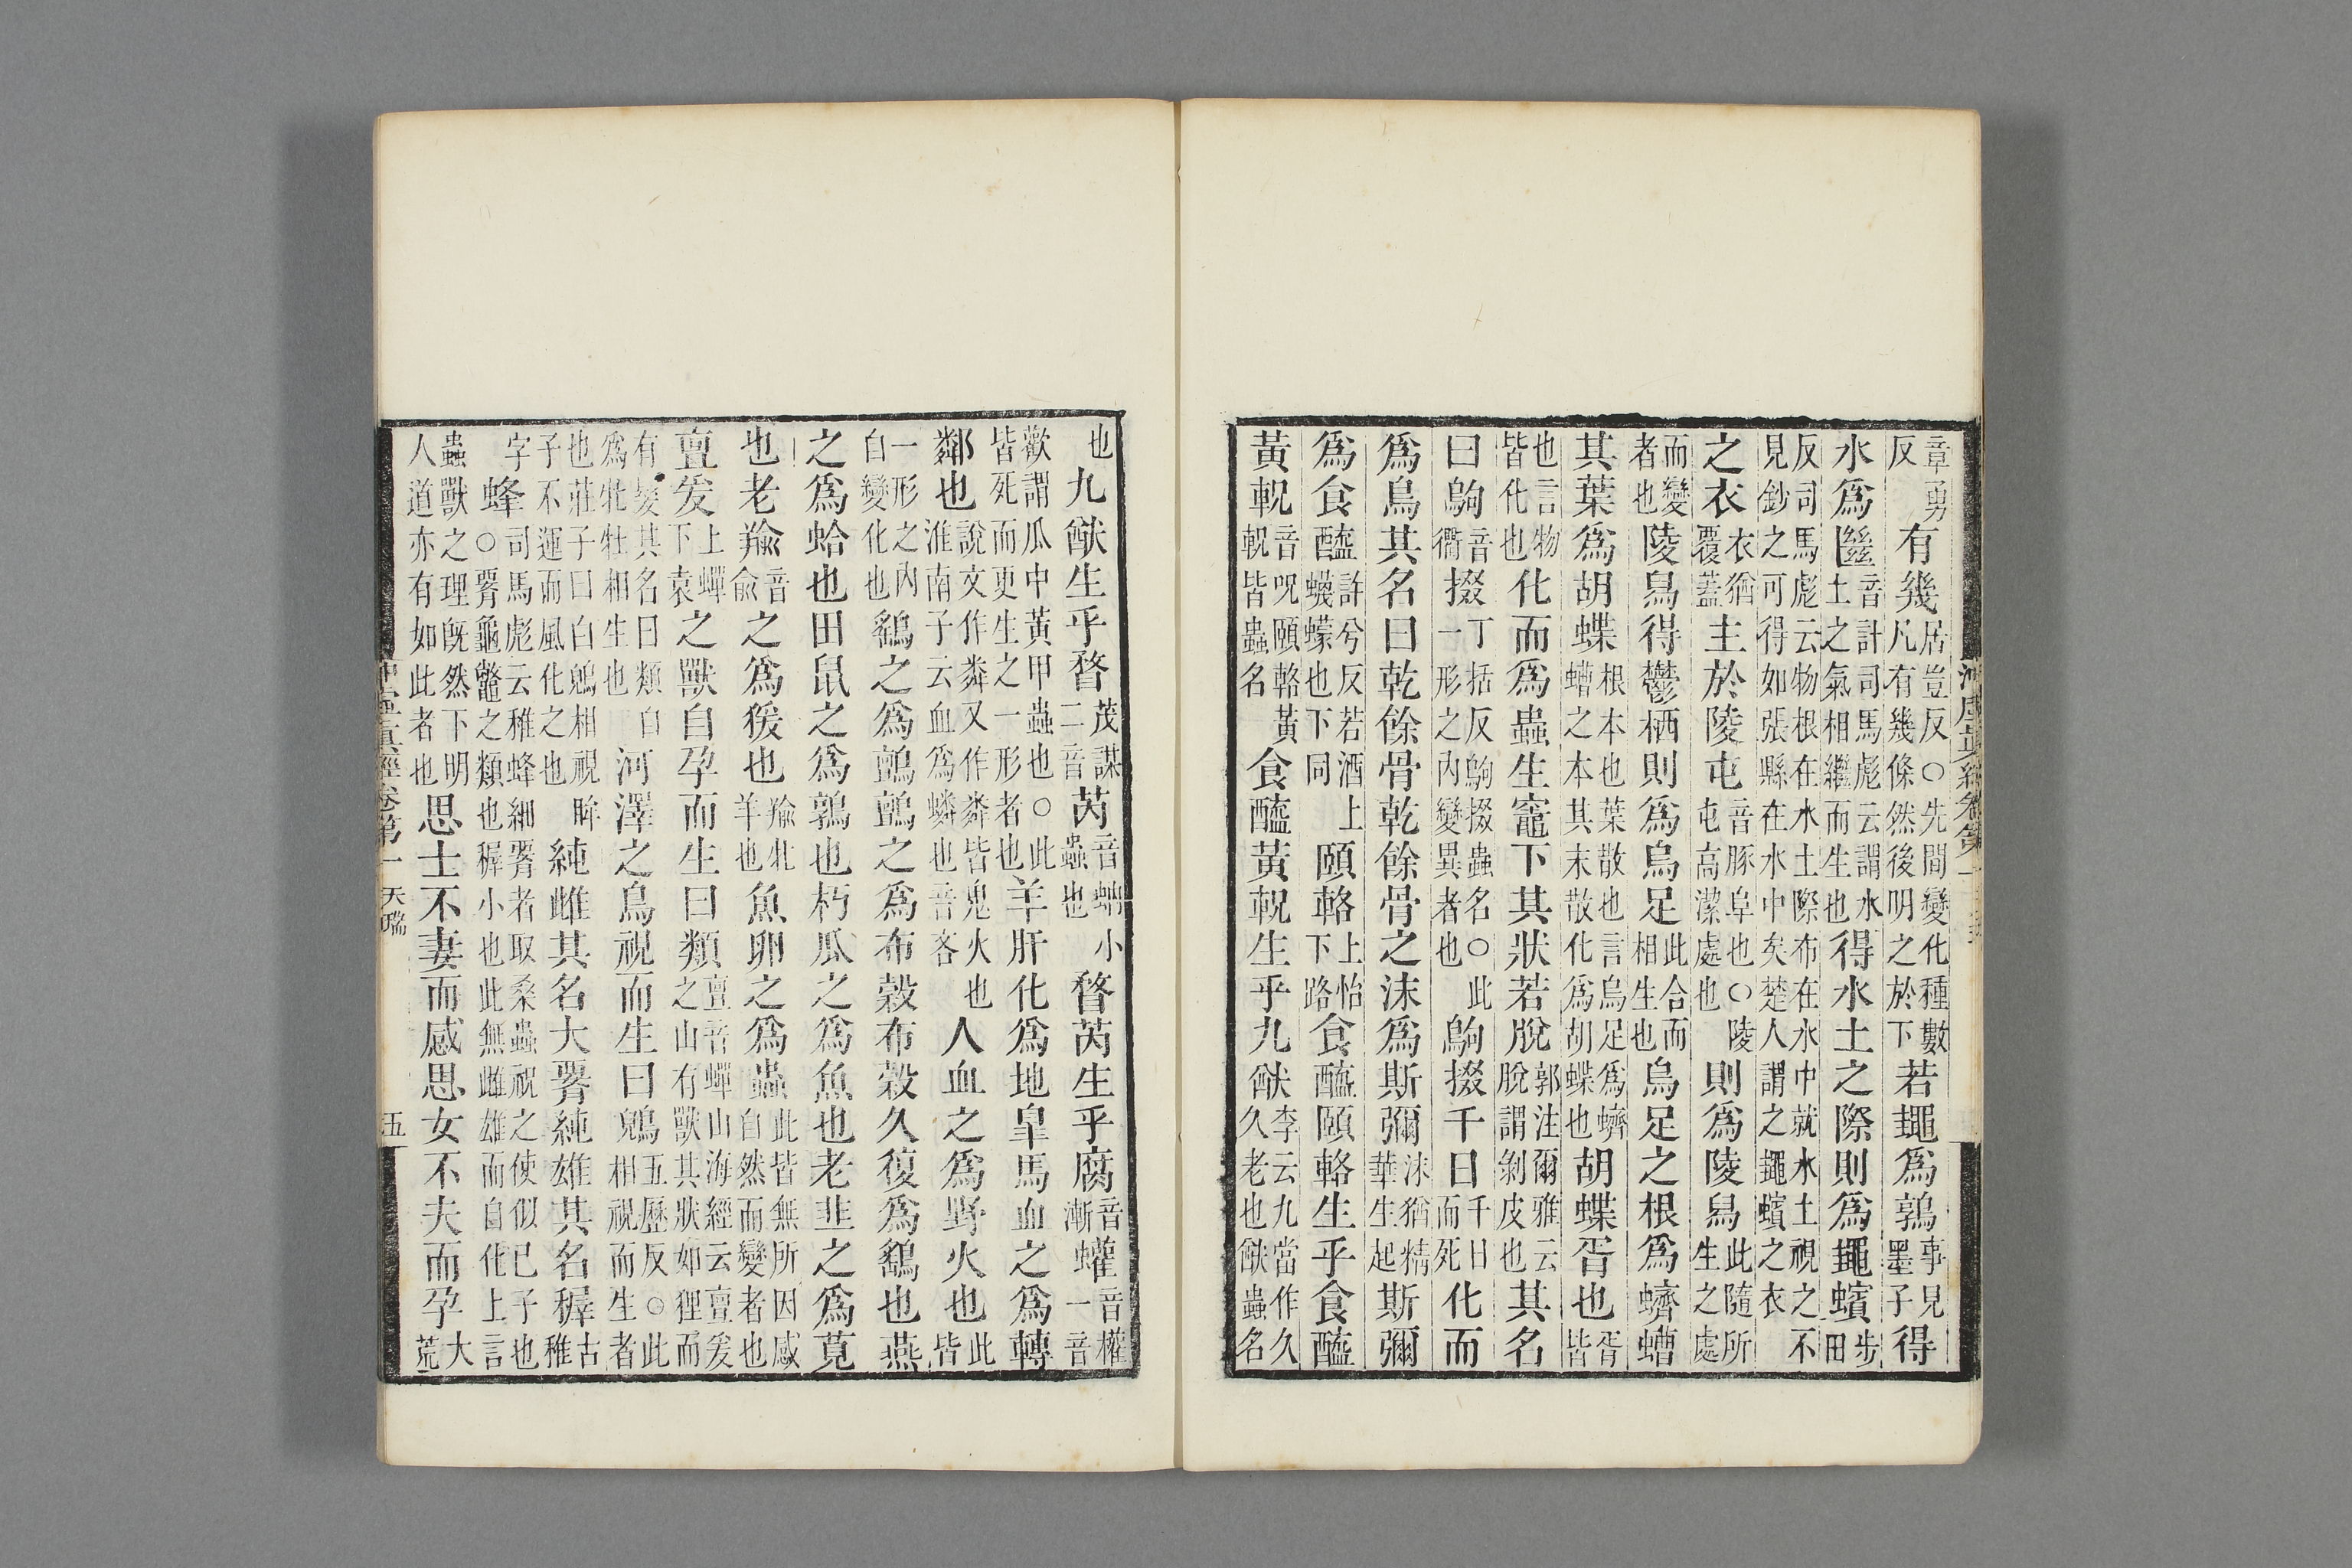 章勇反有幾居豈反○先間變化種數凡有幾條然後明之於下若䵷爲鶉事見墨子得
水爲㡭音計司馬彪云謂水土之氣相繼而生也得水土之際則爲䵷蠙步田
反司馬彪云物根在水土際布在水中就水土視之不見鈔之可得如張縣在水中矣楚人謂之䵷蠙之衣
之衣衣猶覆蓋主於陵屯音豚阜也○陵屯高潔處也則爲陵舃此隨所生之處
而變者也陵舃得鬱栖則爲烏足此合而相生也烏足之根爲蠐螬
其葉爲胡蝶根本也葉散也言烏足爲蠐螬之本其末散化爲胡蝶也胡蝶胥也胥皆
也言物皆化也化而爲蟲生竈下其狀若脫郭注爾雅云脫謂剝皮也其名
曰鴝音衢掇丁括反鴝掇蟲名○此一形之內變異者也鴝掇千日千日而死化而
爲鳥其名曰乾餘骨乾餘骨之沬爲斯彌沬猶精華生起斯彌
爲食醯許兮反若酒上蠛蠓也下同頤輅上怡下路食醯頤輅生乎食醯
黃軦音呪頤輅黃軦皆蟲名食醯黃軦生乎九猷李云九當作久久老也猷蟲名
也九猷生乎瞀茂謀二音芮音蚋小蟲也瞀芮生乎腐音漸蠸音權一音
歡謂瓜中黃甲蟲也○此皆死而更生之一形者也羊肝化爲地皐馬血之爲轉
鄰也說文作粦又作粦皆鬼火也淮南子云血爲燐也音吝人血之爲野火也此皆
一形之內自變化也鷂之爲鸇鸇之爲布穀布穀久復爲鷂也燕
之爲蛤也田鼠之爲鶉也朽瓜之爲魚也老韭之爲莧
也老羭音俞之爲猨也羭牝羊也魚卵之爲蟲此皆無所因感自然而變者也
亶爰上蟬下袁之獸自孕而生曰類亶音蟬山海經云亶爰之山有獸其狀如狸而
有髮其名曰類自爲牝牡相生也河澤之鳥視而生曰鶂五歷反○此相視而生者
也莊子曰白鶂相視眸子不運而風化之也純雌其名大䏿純雄其名稺古稚
字蜂○司馬彪云稚蜂細䏿者取桑蟲祝之使似已子也䏿龜鼈之類也稺小也此無雌雄而自化上言
蟲獸之理旣然下明人道亦有如此者也思士不妻而感思女不夫而孕大荒
沖虛眞經卷第一 天瑞 五